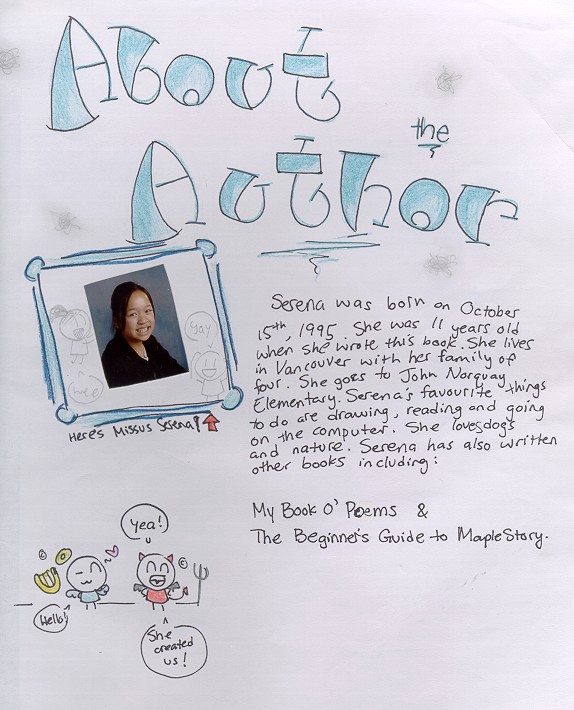 About
the
Author
Serena was born on October
15th, 1995. She was 11 years old
when she wrote this book. She lives
in Vancouver with her family of
four. She goes to John Norquay
Elementary. Serena's favourite things
to do are drawing, reading and going
on the computer. She loves dogs
and nature. Serena has also written
other books including:
My Book O' Poems &
The Beginner's Guide to MapleStory.
Yay
wee
Here's Missus Serena!
Yea!
©
©
Hello!
She
created
us!